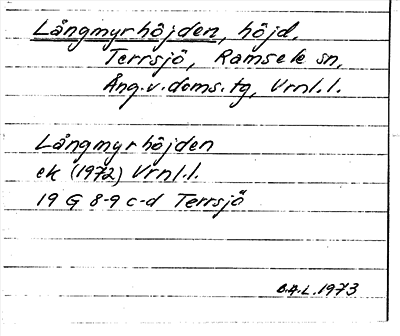 Långmyrhöjden, höjd.
Terrsjö, Ramsele sn,
Ång.v.doms.tg, Vrnl.l.
Långmyrhöjden
ek (1972) Vrnl.l.
19 G 8-9 c-d Terrsjö
B.A.L. 1973